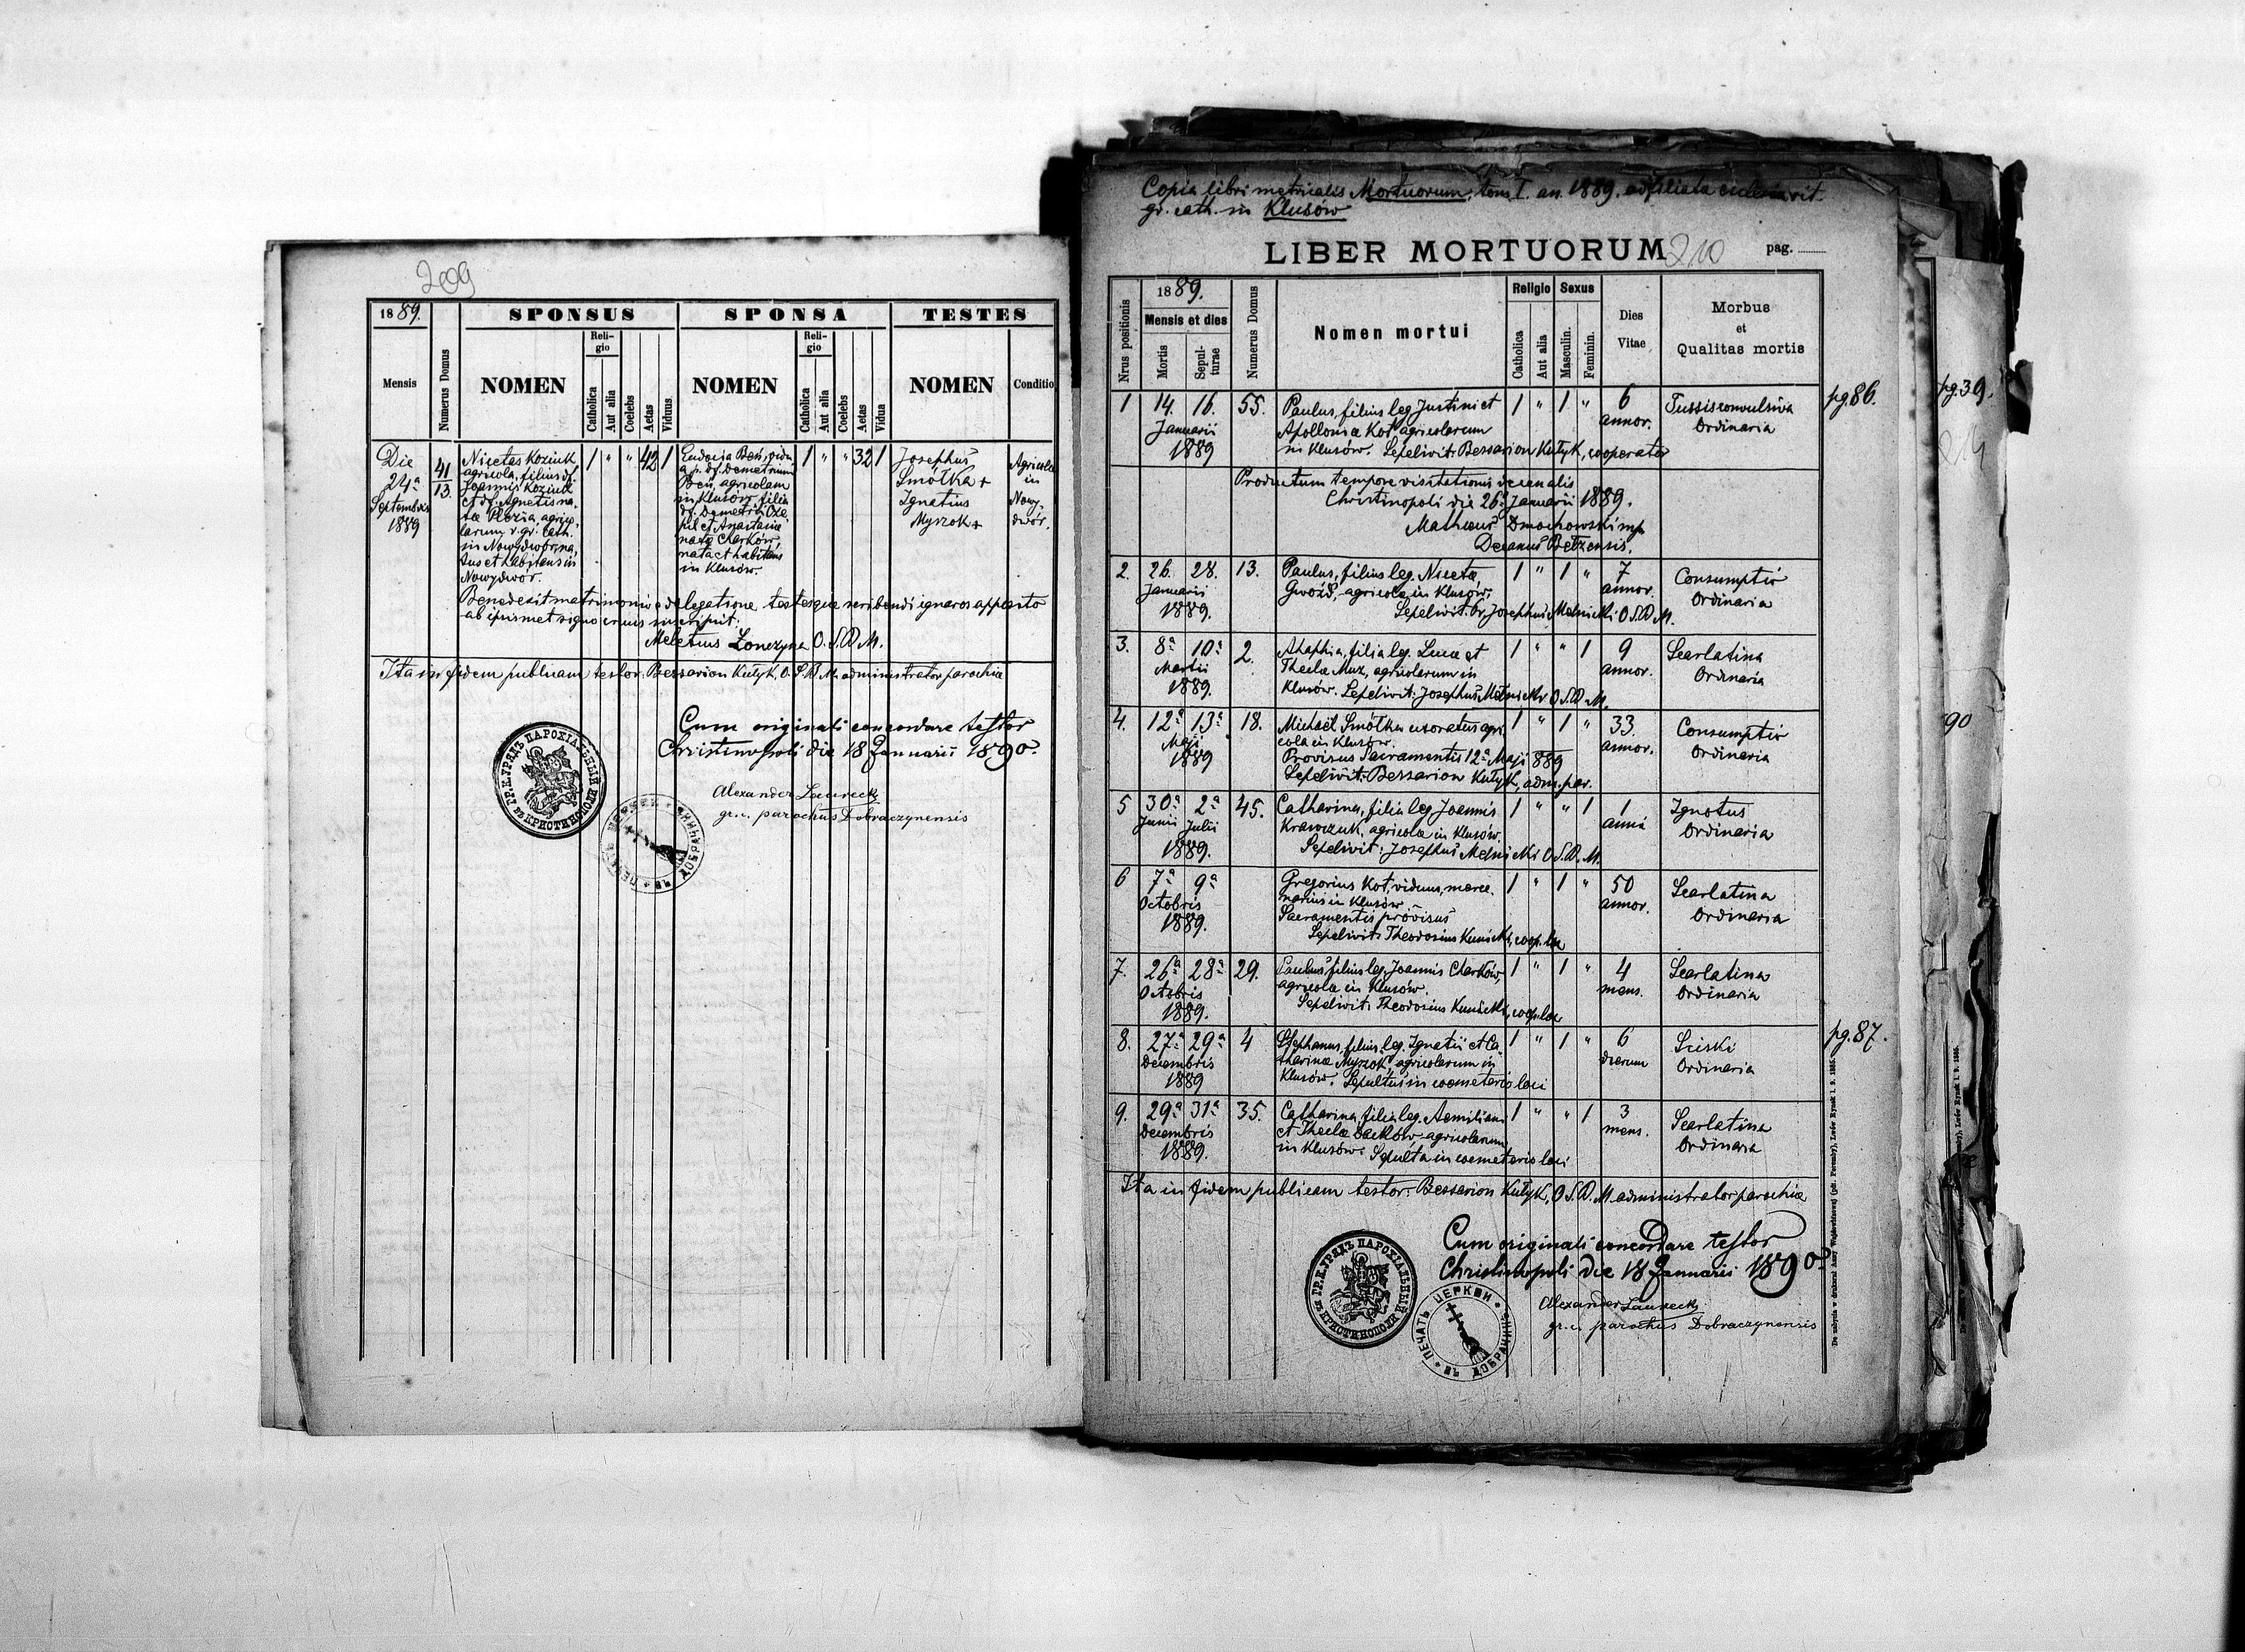 209
1889.
SPONSUS
SPONSA
TESTES
Mensis
Numerus Domus
NOMEN
Religio
Catholica
Aut alia
Coelebs
Aetas
Viduus
NOMEN
Religio
Catholica
Aut alia
Coelebs
Aetas
Vidua
NOMEN
Conditio
Die
24ª
Septembris
1889
41
13.
Nicetas Koziuk
agricola, filius df.
Joannis Koziuk
et df. Agnetis na-
tæ Płozia, agrico-
larum r. gr. cath.
in Nowydwór, na-
tus et habitans in
Nowydwór.
1 " " 42 1
Eudocia Beń, vidu
a p. df. Demetrium
Beń, agricolam
in Klusów, filia
df. Demetrii
et Anastasiæ
natæ Charków,
nata et habitans
in Klusów.
1 " " 32 1
Josephus
Smółka +
Ignatius
Myszok +
Agricolæ
in
Nowy-
dwór.
Benedixit matrimonio e delegatione, testesque scribendi ignaros apposito
ab ipsismet signo crucis inscripsit:
Meletius Łonczyna O.S.B.M.
Ita in fidem publicam testor. Bessarion Kułyk, O.S.B.M. administrator parochiæ
Cum originali concordare testor
Christinopoli die 18 Januarii 1890.
Alexander Laurecki
gr.c. parochus Dobraczynensis
ГР.К. УРЯДЪ ПАРОХІАЛЬНЫЙ въ КРИСТИНОПОЛИ
ПЕЧАТЬ ЦЕРКВИ въ ДОБРАЧИНѢ
Copia libri metricalis Mortuorum, tom. I. an. 1889. ad filialem rit.
gr. cath. in Klusów
LIBER MORTUORUM
210
pag.
Nrus positionis
1889.
Mensis et dies
Mortis
Sepulturae
Numerus Domus
Nomen mortui
Religio
Catholica
Aut alia
Sexus
Masculin.
Feminin.
Dies
Vitae
Morbus
et
Qualitas mortis
1 14. 16. 55. Paulus, filius leg. Justini et 1 " 1 " 6 Tussis convulsiva pg.86.
Januarii Apolloniæ Kot agricolarum annor. Ordinaria
1889 in Klusów. Sepelivit Bessarion Kułyk, cooperator
Productum tempore visitationis decanalis
Christinopoli die 26. Januarii 1889.
Mathæus Dmochowski mp
Decanus Bełzensis.
2. 26. 28. 13. Paulus, filius leg. Nicetæ 1 " 1 " 7 Consumptio
Januarii Gwóźd, agricolæ in Klusów. annor. Ordinaria
1889. Sepelivit: Josephus Melnicki O.S.B.M.
3. 8ª 10ª 2. Ahaphia, filia leg. Lucæ et 1 " " 1 9 Scarlatina
Martii Theclæ Muz, agricolarum in annor. Ordinaria
1889. Klusów. Sepelivit: Josephus Melnicki O.S.B.M.
4. 12ª 13ª 18. Michaël Smółka uxoratus agri- 1 " 1 " 33 Consumptio
Maji cola in Klusów. annor. Ordinaria
1889 Provisus Sacramentis 12ª Maji 889
Sepelivit: Bessarion Kułyk, adm. par.
5 30ª 2ª 45. Catharina, filia leg. Joannis 1 " " 1 1 Ignotus
Junii Julii Krawczuk, agricolæ in Klusów. anni Ordinaria
1889. Sepelivit: Josephus Melnicki O.S.B.M.
6 7ª 9ª Gregorius Kot, viduus, merce- 1 " 1 " 50 Scarlatina
Octobris narius in Klusów annor. Ordinaria
1889. Sacramentis provisus
Sepelivit: Theodosius Kunicki, coop. loci
7. 26ª 28ª 29. Paulus filius leg. Joannis Charków, 1 " 1 " 4 Scarlatina
Octobris agricolæ in Klusów. mens. Ordinaria
1889. Sepelivit: Theodosius Kunicki, coop. loci
8. 27ª 29ª 4 Stephanus, filius leg. Ignatii et Ca- 1 " 1 " 6 Sciski pg.87.
Decembris tharinæ Myszok, agricolarum in dierum Ordinaria
1889 Klusów. Sepultus in coemeterio loci
9. 29ª 31ª 35. Catharina, filia leg. Aemiliani 1 " " 1 3 Scarlatina
Decembris et Theclæ agricolarum mens. Ordinaria
1889. in Klusów. Sepulta in coemeterio loci
Ita in fidem publicam testor. Bessarion Kułyk, O.S.B.M. administrator parochiæ
Cum originali concordare testor
Christinopoli die 18 Januarii 1890.
Alexander Laurecki
gr.c. parochus Dobraczynensis
ГР.К. УРЯДЪ ПАРОХІАЛЬНЫЙ въ КРИСТИНОПОЛИ
ПЕЧАТЬ ЦЕРКВИ въ ДОБРАЧИНѢ
pg.39.
90